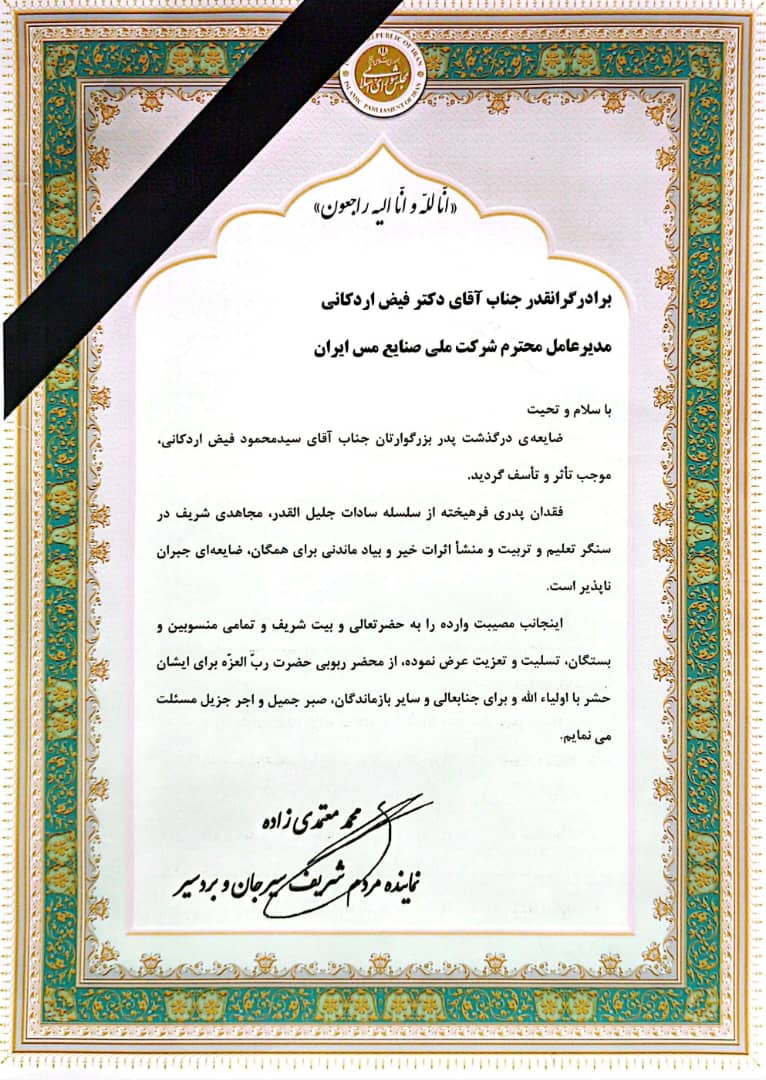 REPUBLIC OF IRAN
مجلس شورای اسلامی
ISLAMIC PARLIAMENT OF IRAN
«انّا للّه و انّا الیه راجعون»
برادرگرانقدر جناب آقای دکتر فیض اردکانی
مدیرعامل محترم شرکت ملی صنایع مس ایران
با سلام و تحیت
ضایعه‌ی درگذشت پدر بزرگوارتان جناب آقای سیدمحمود فیض اردکانی،
موجب تأثر و تأسف گردید.
فقدان پدری فرهیخته از سلسله سادات جلیل القدر، مجاهدی شریف در
سنگر تعلیم و تربیت و منشأ اثرات خیر و بیاد ماندنی برای همگان، ضایعه‌ای جبران
ناپذیر است.
اینجانب مصیبت وارده را به حضرتعالی و بیت شریف و تمامی منسوبین و
بستگان، تسلیت و تعزیت عرض نموده، از محضر ربوبی حضرت ربّ العزّه برای ایشان
حشر با اولیاء الله و برای جنابعالی و سایر بازماندگان، صبر جمیل و اجر جزیل مسئلت
می نمایم.
محمد معتمدی زاده
نماینده مردم شریف سیرجان و بردسیر